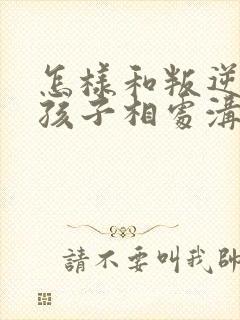 怎樣和叛逆
孩子相處溝
請不要叫我帥